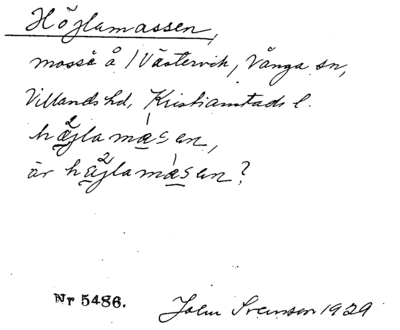 Höjlamassen,
mosse å /Västervik, Vånga sn,
Villands hd, Kristianstads l.
häjlamasen,
är häjlamasen?
Nr 5486.
John Svensson 1929